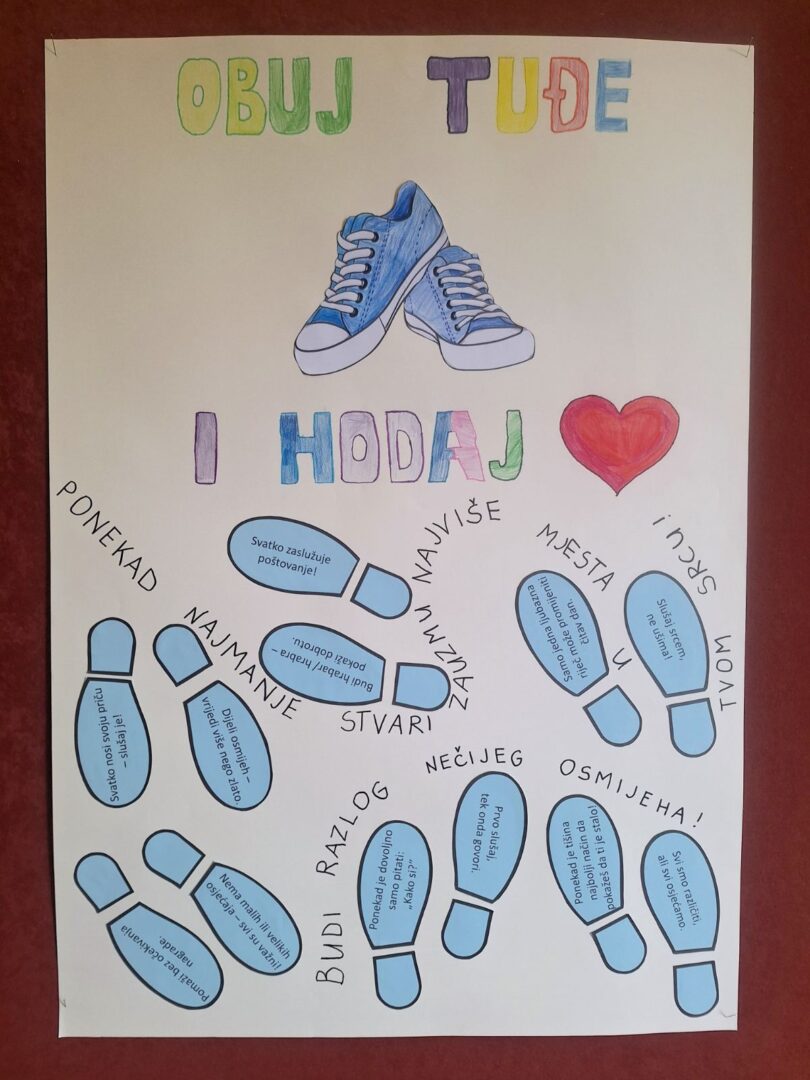 OBUJ TUĐE
I HODAJ
PONEKAD NAJMANJE STVARI ZAUZMU NAJVIŠE MJESTA U TVOM SRCU!
Svatko zaslužuje
poštovanje!
Budi hrabar/ hrabra –
pokaži dobrotu.
Samo jedna ljubazna
riječ može promijeniti
čitav dan.
Slušaj srcem,
ne ušima!
Svatko nosi svoju priču
– slušaj je!
Dijeli osmijeh –
vrijedi više nego zlato.
BUDI RAZLOG NEČIJEG OSMIJEHA!
Pomaži bez očekivanja
nagrade.
Nema malih ili velikih
osjećaja – svi su važni!
Ponekad je dovoljno
samo pitati:
„Kako si?“
Prvo slušaj,
tek onda govori.
Ponekad je tišina
najbolji način da
pokažeš da ti je stalo!
Svi smo različiti,
ali svi osjećamo.